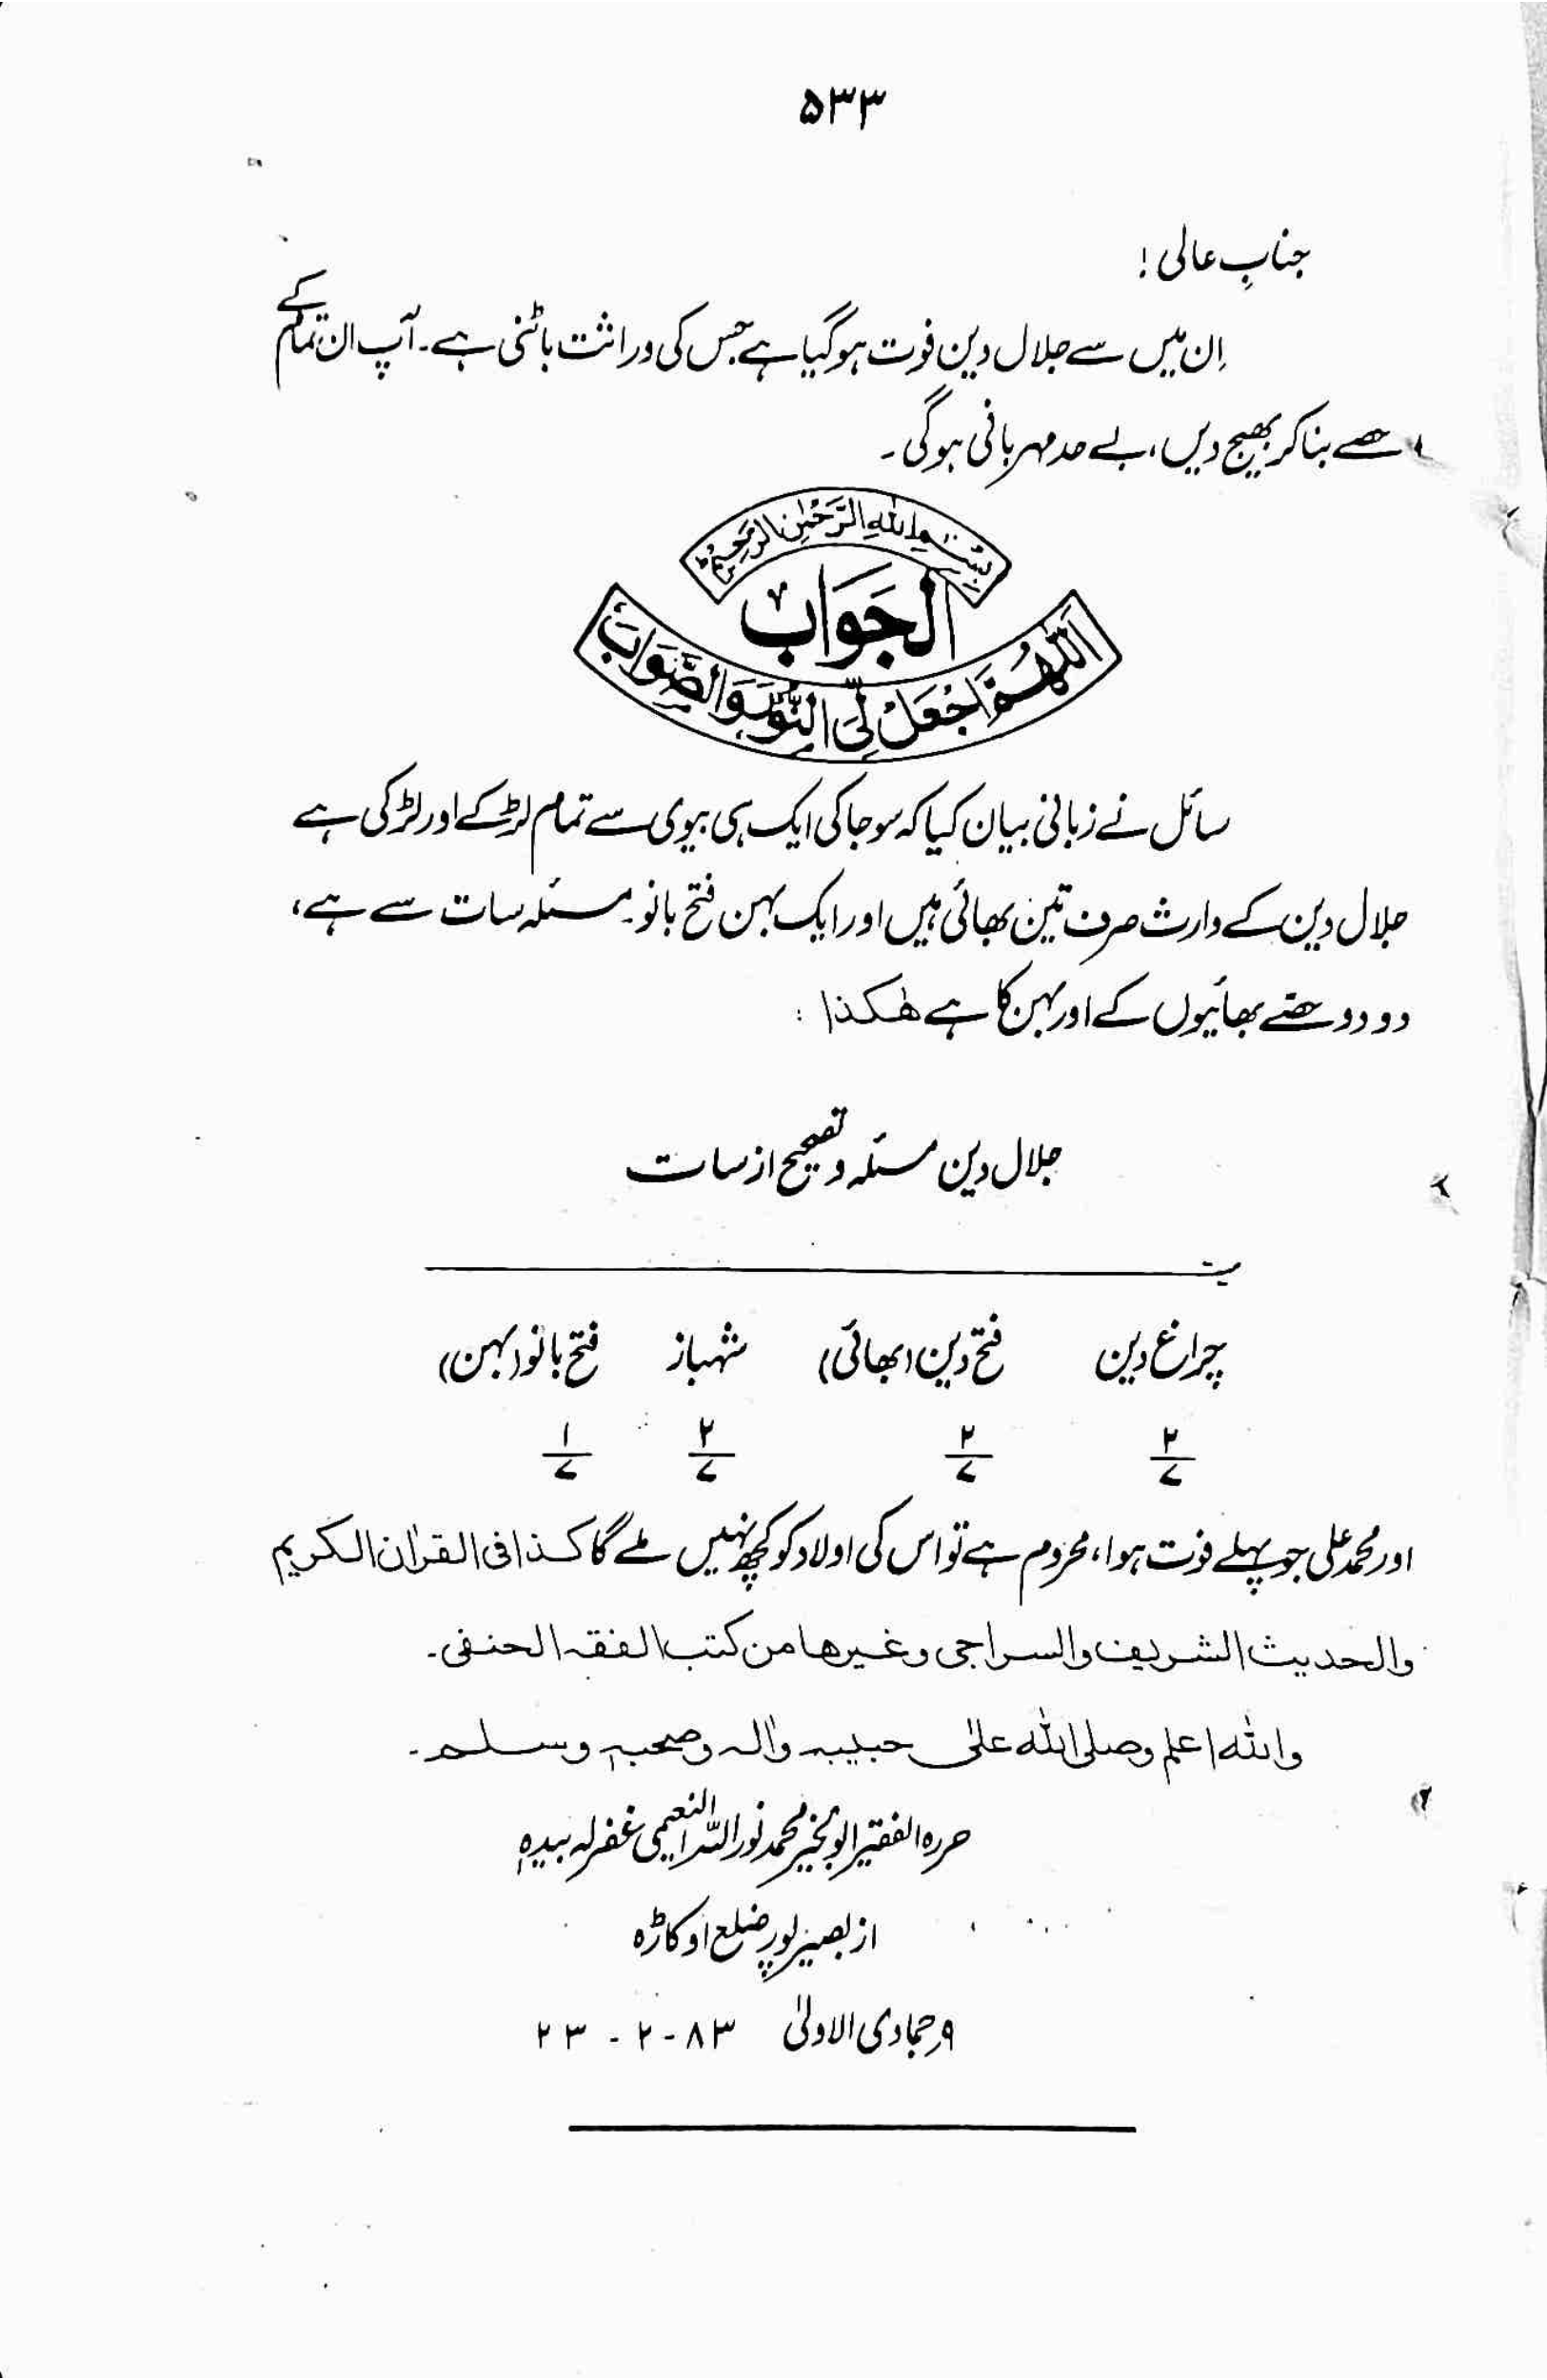 ۵۳۳
جنابِ عالی !
اِن میں سے جلال دین فوت ہو گیا ہے جس کی وراثت بانٹنی ہے۔ آپ ان تمام کے
حصے بنا کر بھیج دیں، بے حد مہربانی ہو گی۔
بِسْمِ اللهِ الرَّحْمٰنِ الرَّحِيْمِ
اَلجَوَابُ
اَللّٰهُمَّ اجْعَلْ لِّیَ النُّوْرَ وَالصَّوَابَ
سائل نے زبانی بیان کیا کہ سوجا کی ایک ہی بیوی سے تمام لڑکے اور لڑکی ہے
جلال دین کے وارث صرف تین بھائی ہیں اور ایک بہن فتح بانو۔ مسئلہ سات سے ہے،
دو دو حصّے بھائیوں کے اور بہن کا ہے ھٰکذا :
جلال دین مسئلہ و تصحیح از سات
میت
چراغ دین فتح دین (بھائی) شہباز فتح بانو (بہن)
۲/۷ ۲/۷ ۲/۷ ۱/۷
اور محمد علی جو پہلے فوت ہوا، محروم ہے تو اس کی اولاد کو کچھ نہیں ملے گا کذا فی القرآن الکریم
والحدیث الشریف والسراجی وغیرھا من کتب الفقہ الحنفی۔
واللہ اعلم وصلی اللہ علیٰ حبیبہ واٰلہ وصحبہٖ وسلم۔
حررہ الفقیر ابوالخیر محمد نور اللہ النعیمی غفرلہ بیدہٖ
از بصیر پور ضلع اوکاڑہ
۹ جمادی الاولیٰ ۸۳-۲-۲۳